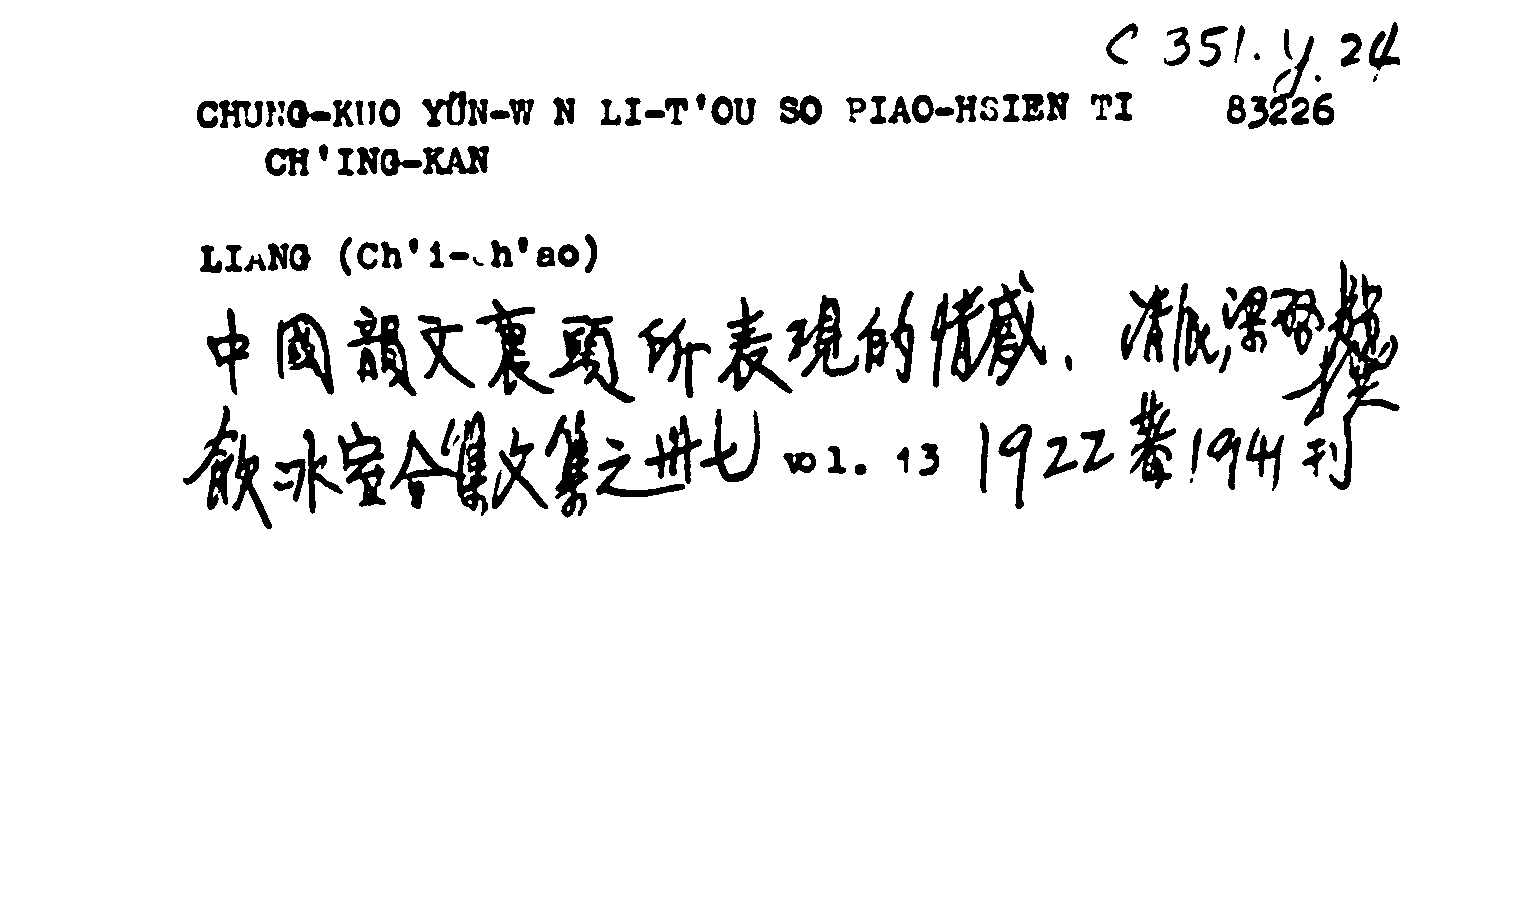 C 351. y. 24
CHUNG-KUO YÜN-W N LI-T'OU SO PIAO-HSIEN TI 83226
CH'ING-KAN
LIANG (Ch'i-ch'ao)
中國韻文裏頭所表現的情感. 清末,梁啓超撰
飲冰室合集文集之卅七 vol. 13 1922著1941刊